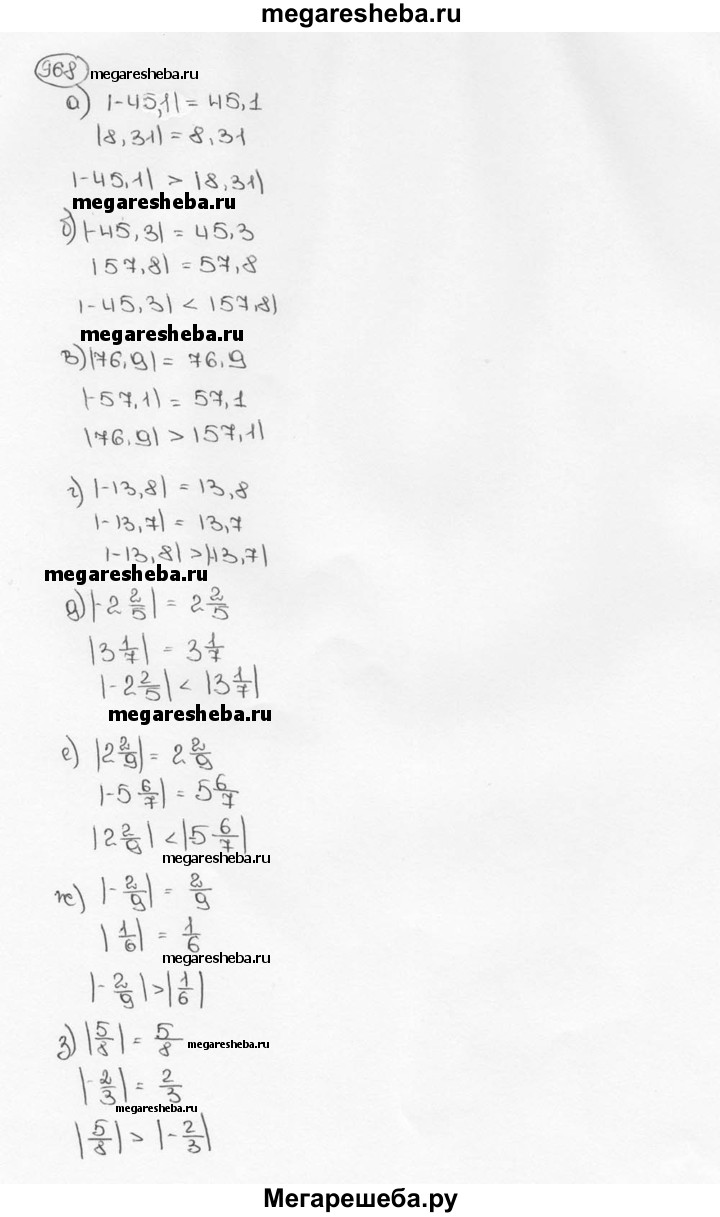 megaresheba.ru
968 megaresheba.ru
а) |-45,1| = 45,1
|8,31| = 8,31
|-45,1| > |8,31|
megaresheba.ru
б) |-45,3| = 45,3
|57,8| = 57,8
|-45,3| < |57,8|
megaresheba.ru
в) |76,9| = 76,9
|-57,1| = 57,1
|76,9| > |57,1|
г) |-13,8| = 13,8
|-13,7| = 13,7
|-13,8| > |13,7|
megaresheba.ru
д) |-2 2/5| = 2 2/5
|3 1/7| = 3 1/7
|-2 2/5| < |3 1/7|
megaresheba.ru
е) |2 2/9| = 2 2/9
|-5 6/7| = 5 6/7
|2 2/9| < |5 6/7|
megaresheba.ru
ж) |-2/9| = 2/9
|1/6| = 1/6
megaresheba.ru
|-2/9| > |1/6|
з) |5/8| = 5/8 megaresheba.ru
|-2/3| = 2/3
megaresheba.ru
|5/8| > |-2/3|
Мегарешеба.ру